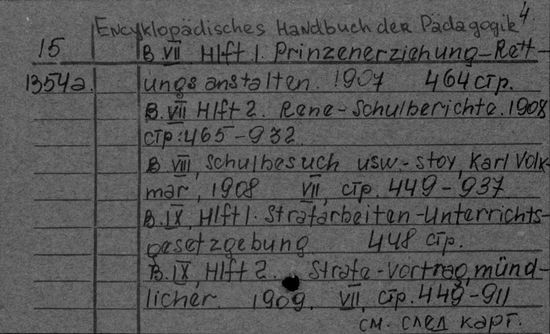 Encyklopädisches Handbuch der Pädagogik 4.
15 B. VII Hlft 1. Prinzenerziehung-Rett-
1354a. ungsanstalten. 1907 464 стр.
B. VII Hlft 2. Rene-Schulberichte. 1908
стр: 465-932
B. VIII, Schulbesuch usw.-Stoy, Karl Volk-
mar, 1908 VII, стр. 449-937
B. IX, Hlft 1. Strafarbeiten-Unterrichts-
gesetzgebung 448 стр.
B. IX, Hlft 2. Strafe-Vortrag, münd-
licher. 1909. VII, стр. 449-911
см. след карт.